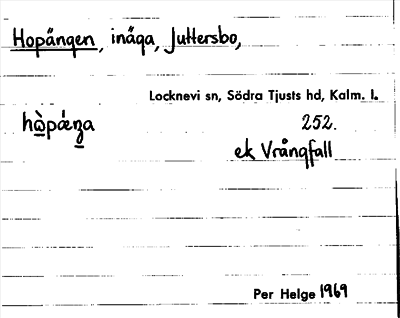 Hopängen, inäga, Juttersbo,
Locknevi sn, Södra Tjusts hd, Kalm. l.
hὼpǽŋa 252.
ek Vrångfall
Per Helge 1969